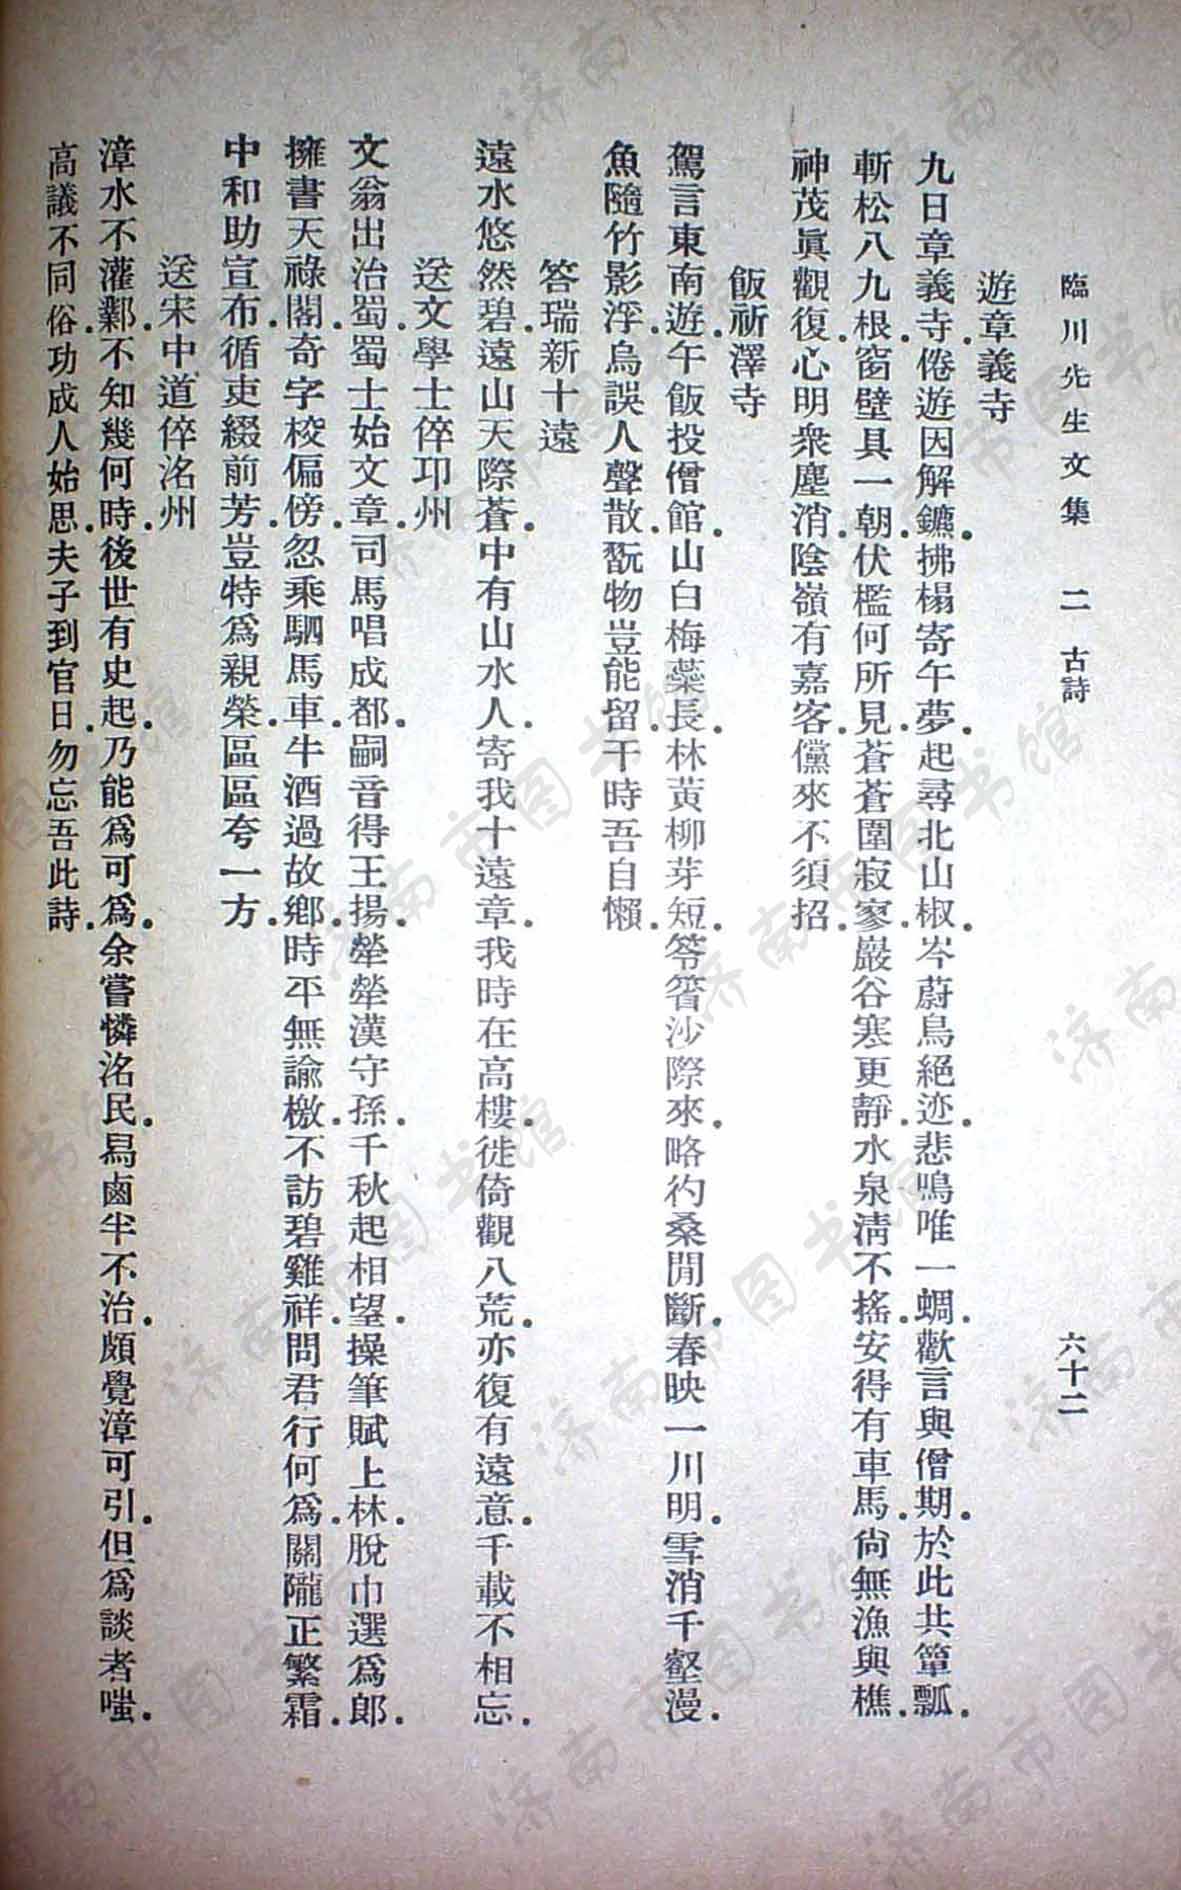 臨川先生文集 二 古詩 六十二
遊章義寺
九日章義寺倦遊因解鑣拂榻寄午夢起尋北山椒岑蔚鳥絕迹悲鳴唯一蜩歡言與僧期於此共簞瓢
斬松八九根窗壁具一朝伏檻何所見蒼蒼圍寂寥巖谷寒更靜水泉淸不搖安得有車馬尙無漁與樵
神茂眞觀復心明衆塵消陰嶺有嘉客儻來不須招
飯祈澤寺
駕言東南遊午飯投僧館山白梅蘂長林黃柳芽短笭箵沙際來略彴桑閒斷春映一川明雪消千壑漫
魚隨竹影浮鳥誤人聲散翫物豈能留干時吾自懶
答瑞新十遠
遠水悠然碧遠山天際蒼中有山水人寄我十遠章我時在高樓徙倚觀八荒亦復有遠意千載不相忘
送文學士倅邛州
文翁出治蜀蜀士始文章司馬唱成都嗣音得王揚犖犖漢守孫千秋起相望操筆賦上林脫巾選爲郞
擁書天祿閣奇字校偏傍忽乘駟馬車牛酒過故鄉時平無諭檄不訪碧雞祥問君行何爲關隴正繁霜
中和助宣布循吏綴前芳豈特爲親榮區區夸一方
送宋中道倅洺州
漳水不灌鄴不知幾何時後世有史起乃能爲可爲余嘗憐洺民舄鹵半不治頗覺漳可引但爲談者嗤
高議不同俗功成人始思夫子到官日勿忘吾此詩